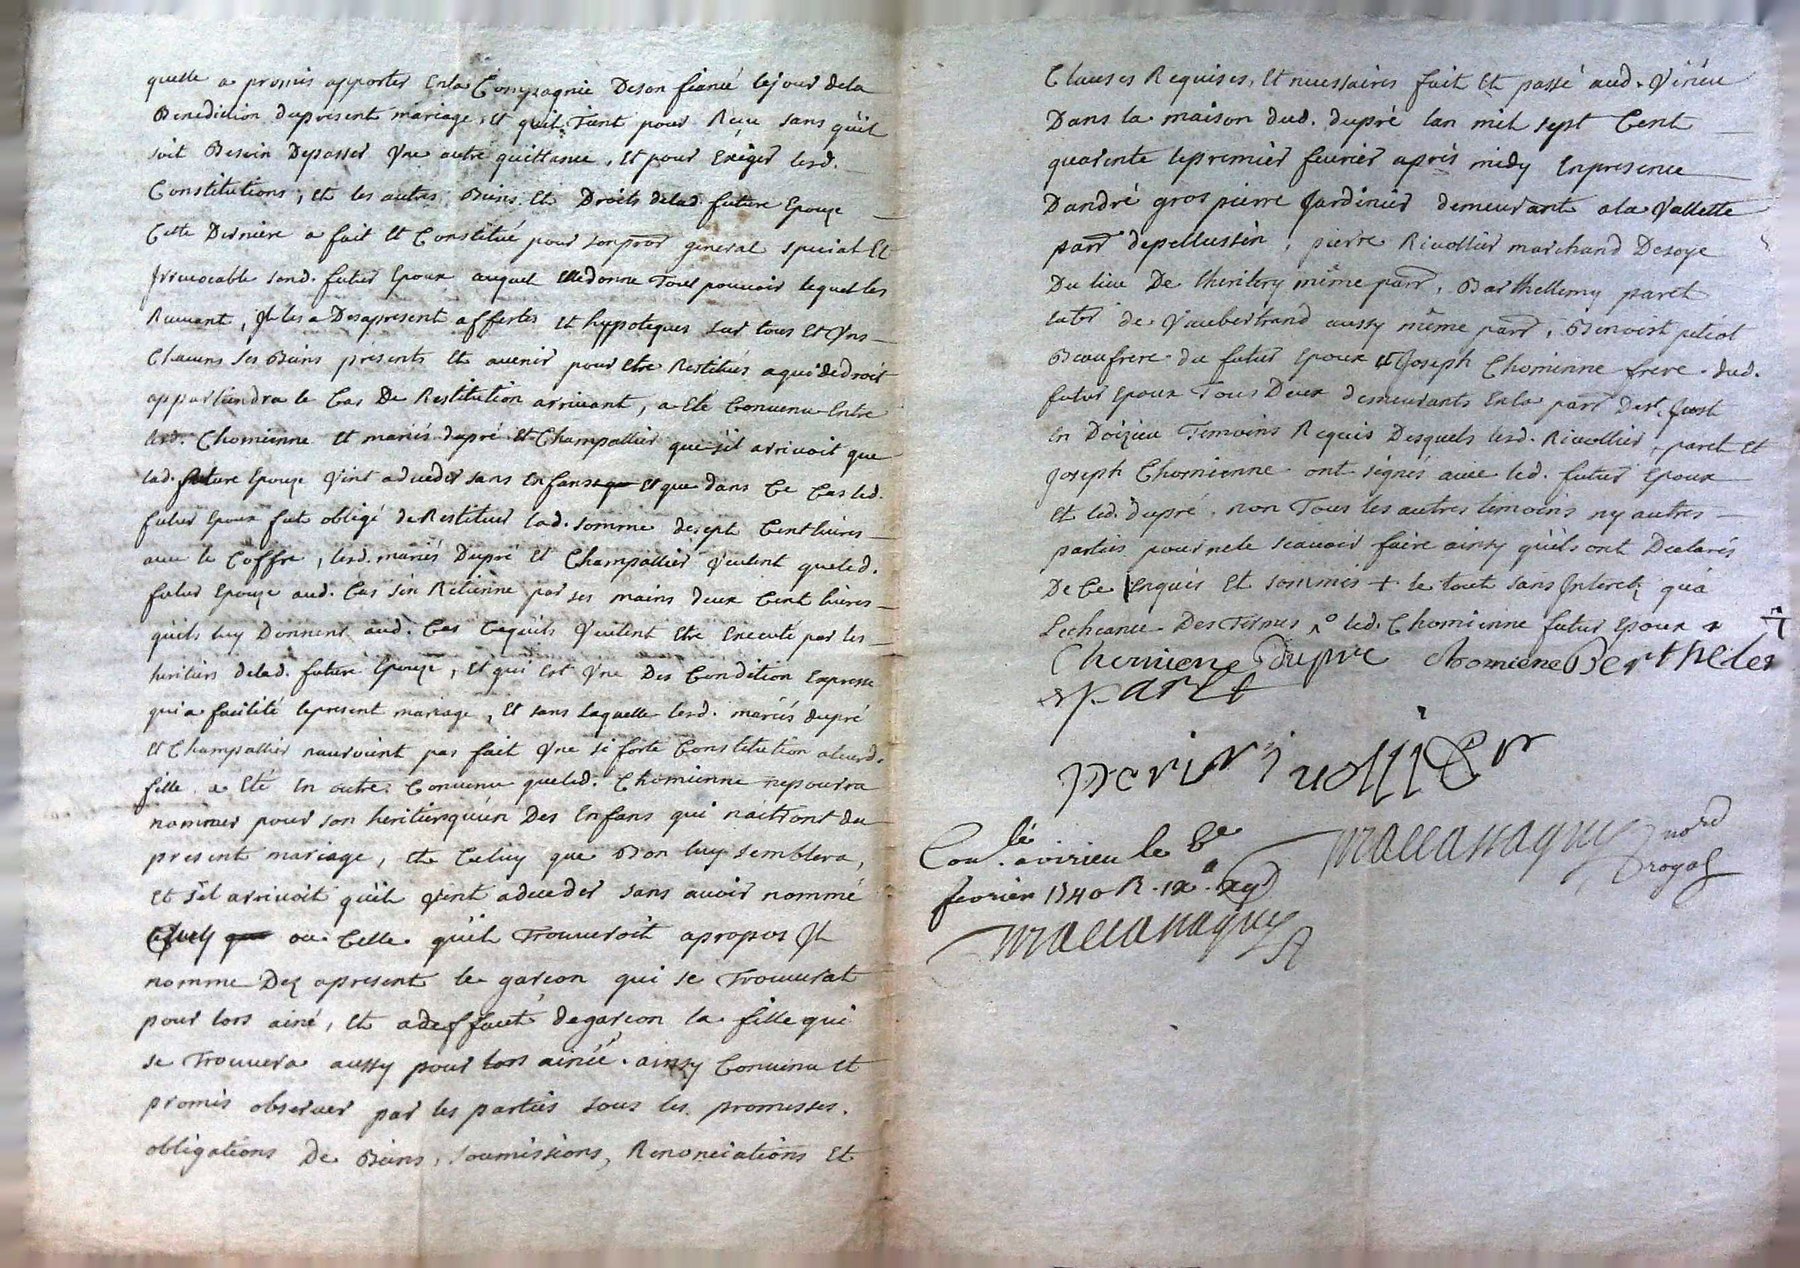 quelle a promis apporter En la Compagnie De son fiancé le jour de la
Benediction du present mariage, Et quil Tient pour Reçu sans qu'il
soit Besoin De passer Vne autre quittance, Et pour Exiger lesd.
Constitutions, Et les autres Biens Et Droits de lad. future Epouze
Cette Derniere a fait Et Constitué pour son procr general special Et
Irrevocable sond. futur Epoux auquel Elle donne Tout pouvoir lequel les
Recevant, Il les a Desapresent affectés Et hyppoteques sur tous Et Vns
Chacuns ses Biens présents Et avenir pour Etre Restitués a qui de droit
appartiendra le Cas De Restitution arrivant, a Eté Convenu Entre
led. Chomienne Et mariés dupré Et Champallier que s'il arrivoit que
lad. future Epouze Vint a deceder sans Enfans Et que dans Ce Cas led.
futur Epoux fut obligé de Restituer lad. somme de sept Cent livres
avec le Coffre, lesd. mariés Dupré Et Champallier Veulent que led.
futur Epouze aud. Cas s'en Retienne par ses mains deux Cent livres
qu'ils luy Donnent aud. Cas Ce quils Veulent Etre Executé par les
heritiers de lad. future Epouze, Et qui Est Vne Des Condition Expresse
qui a facilité le present mariage, Et sans laquelle lesd. mariés dupré
Et Champallier nauroient pas fait Vne si forte Constitution a leurd.
fille, a Eté En outre Convenu que led. Chomienne ne pourra
nommer pour son heritier qu'un Des Enfans qui naitront du
present mariage, Et Celuy que Bon luy semblera,
Et s'il arrivoit qu'il Vint a deceder sans avoir nommé
Celuy ou Celle qu'il Trouveroit apropos Il
nomme Dez apresent le garcon qui se Trouverat
pour lors ainé, Et a deffaut de garcon la fille qui
se Trouvera aussy pour lors ainée. ainsy Convenu Et
promis observer par les parties sous les promesses.
obligations De Biens, soumissions, Renonciations Et
Clauses Requises, Et necessaires fait Et passé aud. Virieu
Dans la maison dud. dupré lan mil sept Cent
quarente le premier fevrier après midy En presence
D'andré gros pierre Jardinier demeurant a la Vallette
parr de pellussin, pierre Rivollier marchand De soye
Du lieu De même parr, Barthellemy paret
de Vaubertrand aussy même parr, Benoist
Beaufrere du futur Epoux Et Joseph Chomienne frere dud.
futur Epoux Tous Deux demeurants En la parr De st. Just
En Doizieu Temoins Requis Desquels lesd. Rivollier, paret Et
Joseph Chomienne ont signés avec led. futur Epoux
Et led. dupré, non Tous les autres temoins ny autres
parties pour ne le scavoir faire ainsy qu'ils ont Declarés
De Ce Enquis Et sommés + le tout sans Interetz qu'a
L'echeance Des Termes led. Chomienne futur Epoux
Chomiene Dupré Chomiene Berthelem
paret
rivollier
Conlé a virieu le 8e
fevrier 1740 R.